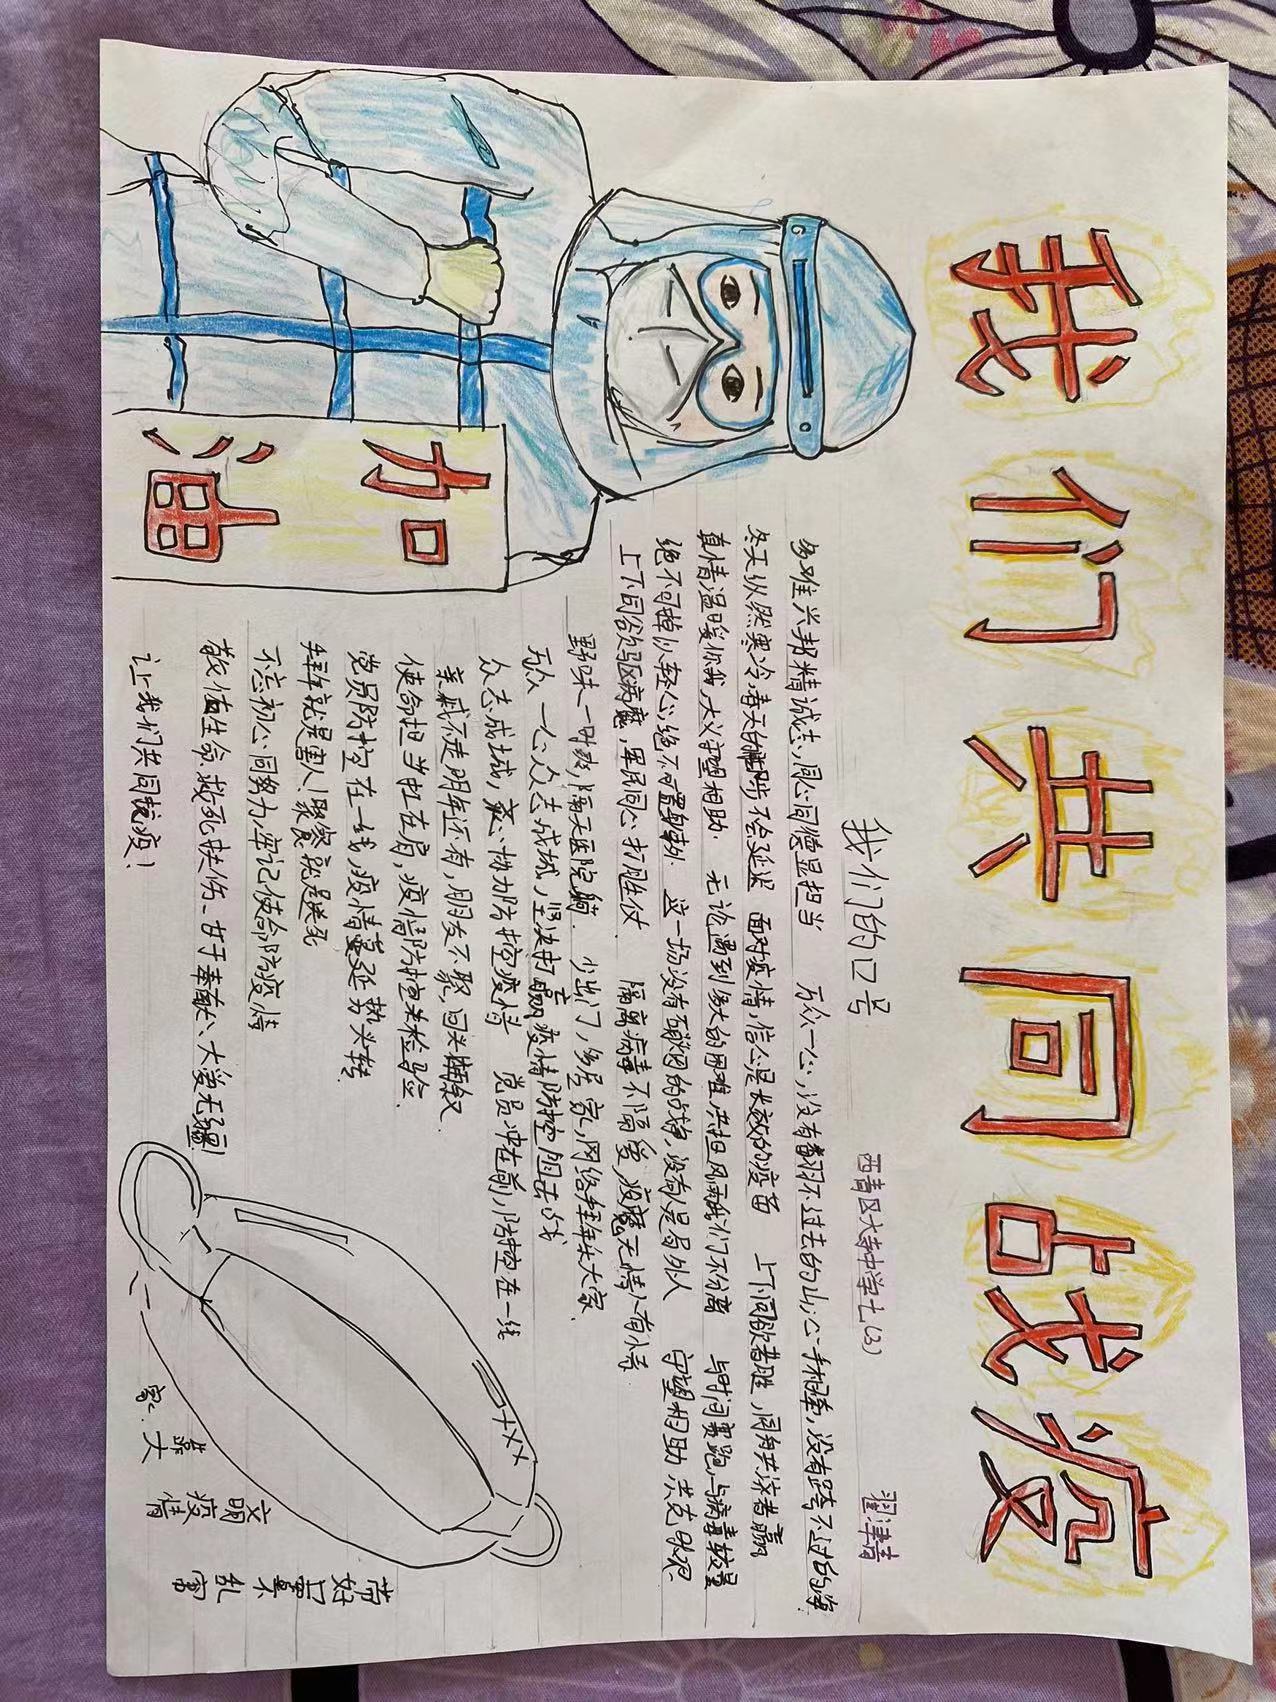 我们共同战疫
我们的口号
西青区大寺中学七(3)
多难兴邦精诚志,同心同德显担当 万众一心,没有翻不过去的山,心手相牵,没有跨不过的海
冬天纵然寒冷,春天的脚步不会延迟 面对疫情,信心是长效的疫苗 上下同欲者胜,同舟共济者赢
真情温暖你我,大义守望相助. 无论遇到多大的困难,共担风雨我们不分离 与时间赛跑,与病毒较量
绝不可掉以轻心,绝不可置身事外 这一场没有硝烟的战争,没有人是局外人 守望相助 共克时艰
上下同欲驱病魔,军民同心打胜仗. 隔离病毒不隔爱,疫魔无情人有情
野味一时爽,隔天医院躺. 少出门,多居家,网络拜年大家
万众一心众志成城,坚决打赢疫情防控阻击战
众志成城,齐心协力防控疫情 党员冲在前,防控在一线
亲戚不走明年还有,朋友不聚,回头再叙
使命担当扛在肩,疫情防控来检验
党员防控在一线,疫情蔓延势头转
拜年就是害人!聚餐就是找死
不忘初心同努力,牢记使命防疫情
敬佑生命 救死扶伤 甘于奉献、大爱无疆!
让我们共同抗疫!
加
油
带好口罩不乱
文明疫情
靠大